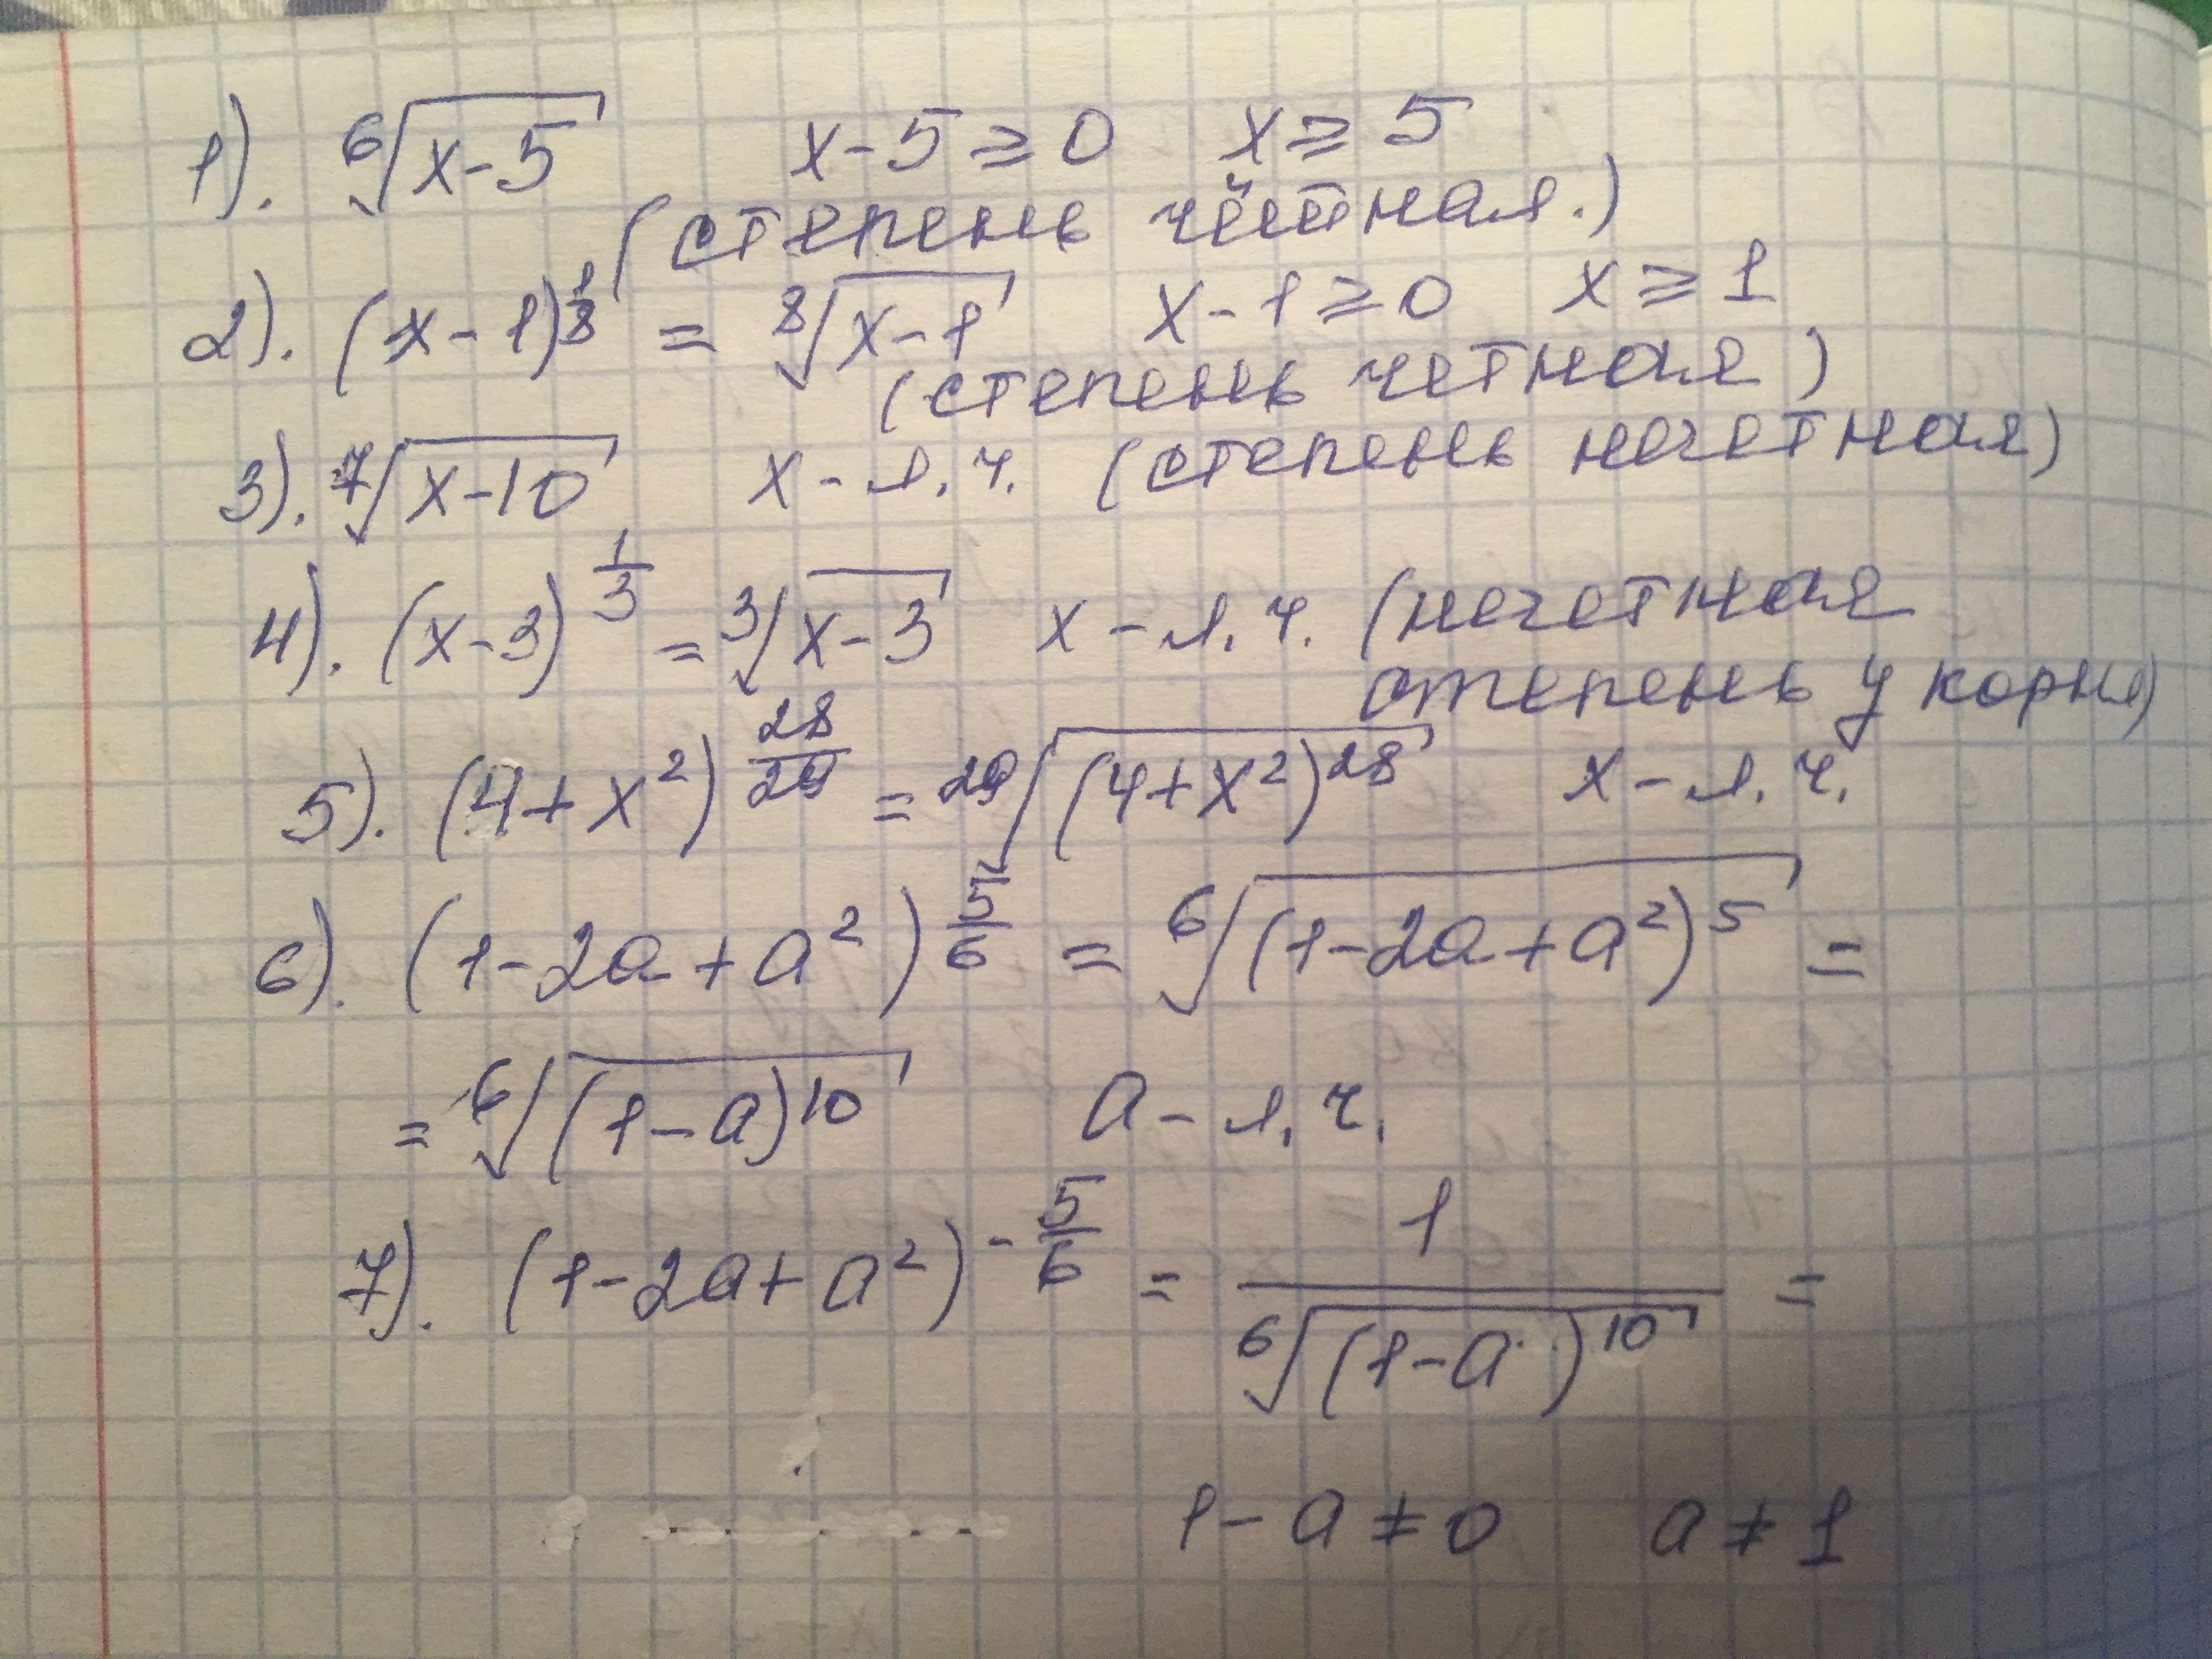 1). ⁶√(x-5) x-5 ≥ 0 x ≥ 5
(степень чётная.)
2). (x-1)^(1/8) = ⁸√(x-1) x-1 ≥ 0 x ≥ 1
(степень четная)
3). ⁷√(x-10) x - л.ч. (степень нечетная)
4). (x-3)^(1/3) = ³√(x-3) x - л.ч. (нечетная
степень у корня)
5). (4+x²)^(28/29) = ²⁹√((4+x²)²⁸) x - л.ч.
6). (1-2a+a²)^(5/6) = ⁶√((1-2a+a²)⁵) =
= ⁶√((1-a)¹⁰) a - л.ч.
7). (1-2a+a²)^(-5/6) = 1/⁶√((1-a)¹⁰) =
1-a ≠ 0 a ≠ 1